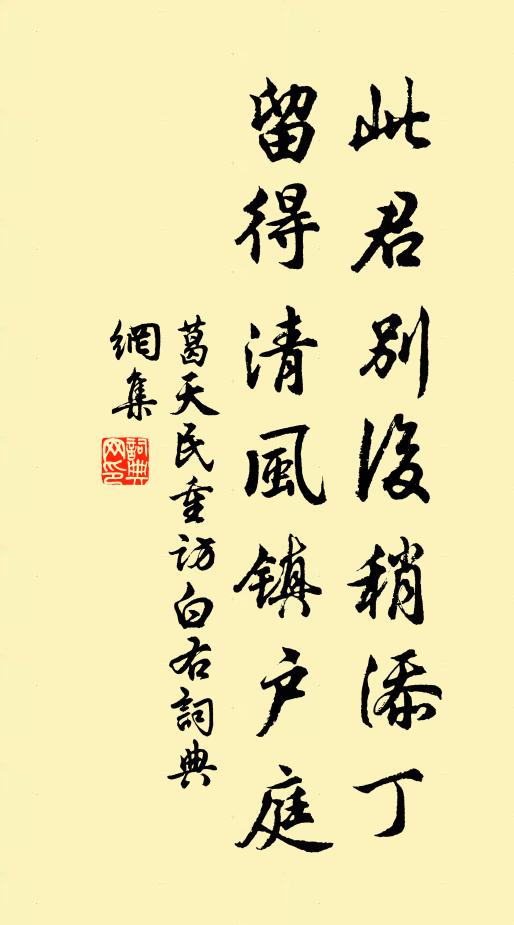 此君別後稍添丁
留得清風镇户庭
葛天民重访白石詞典
網集
詞典网印